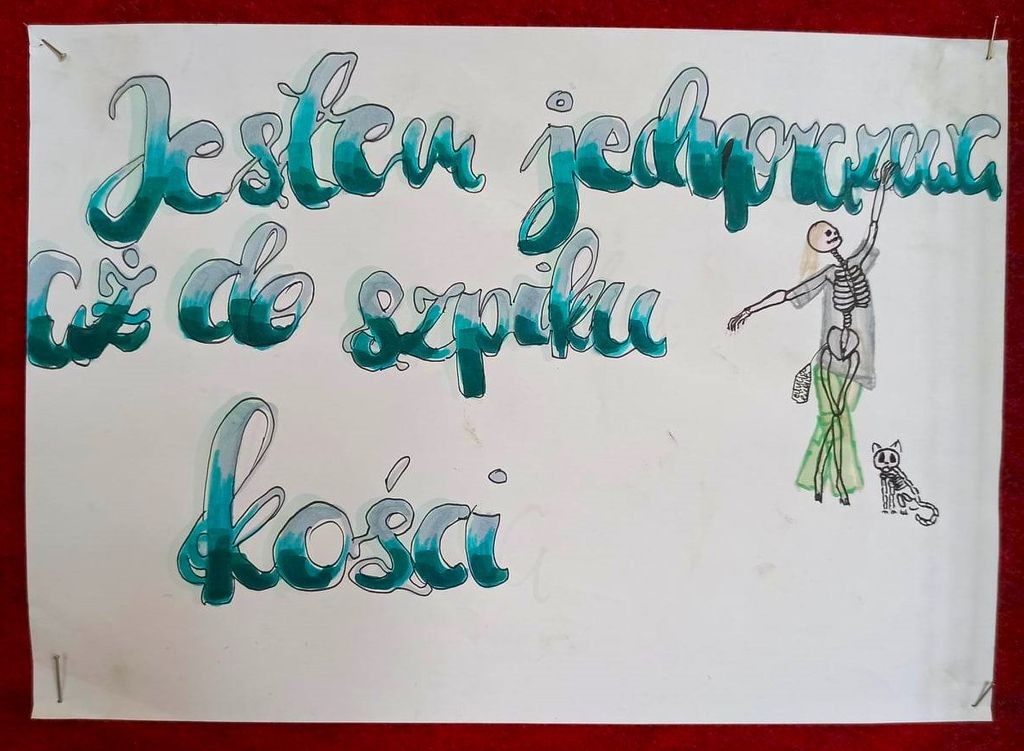 Jestem jednorazowa
aż do szpiku
kości